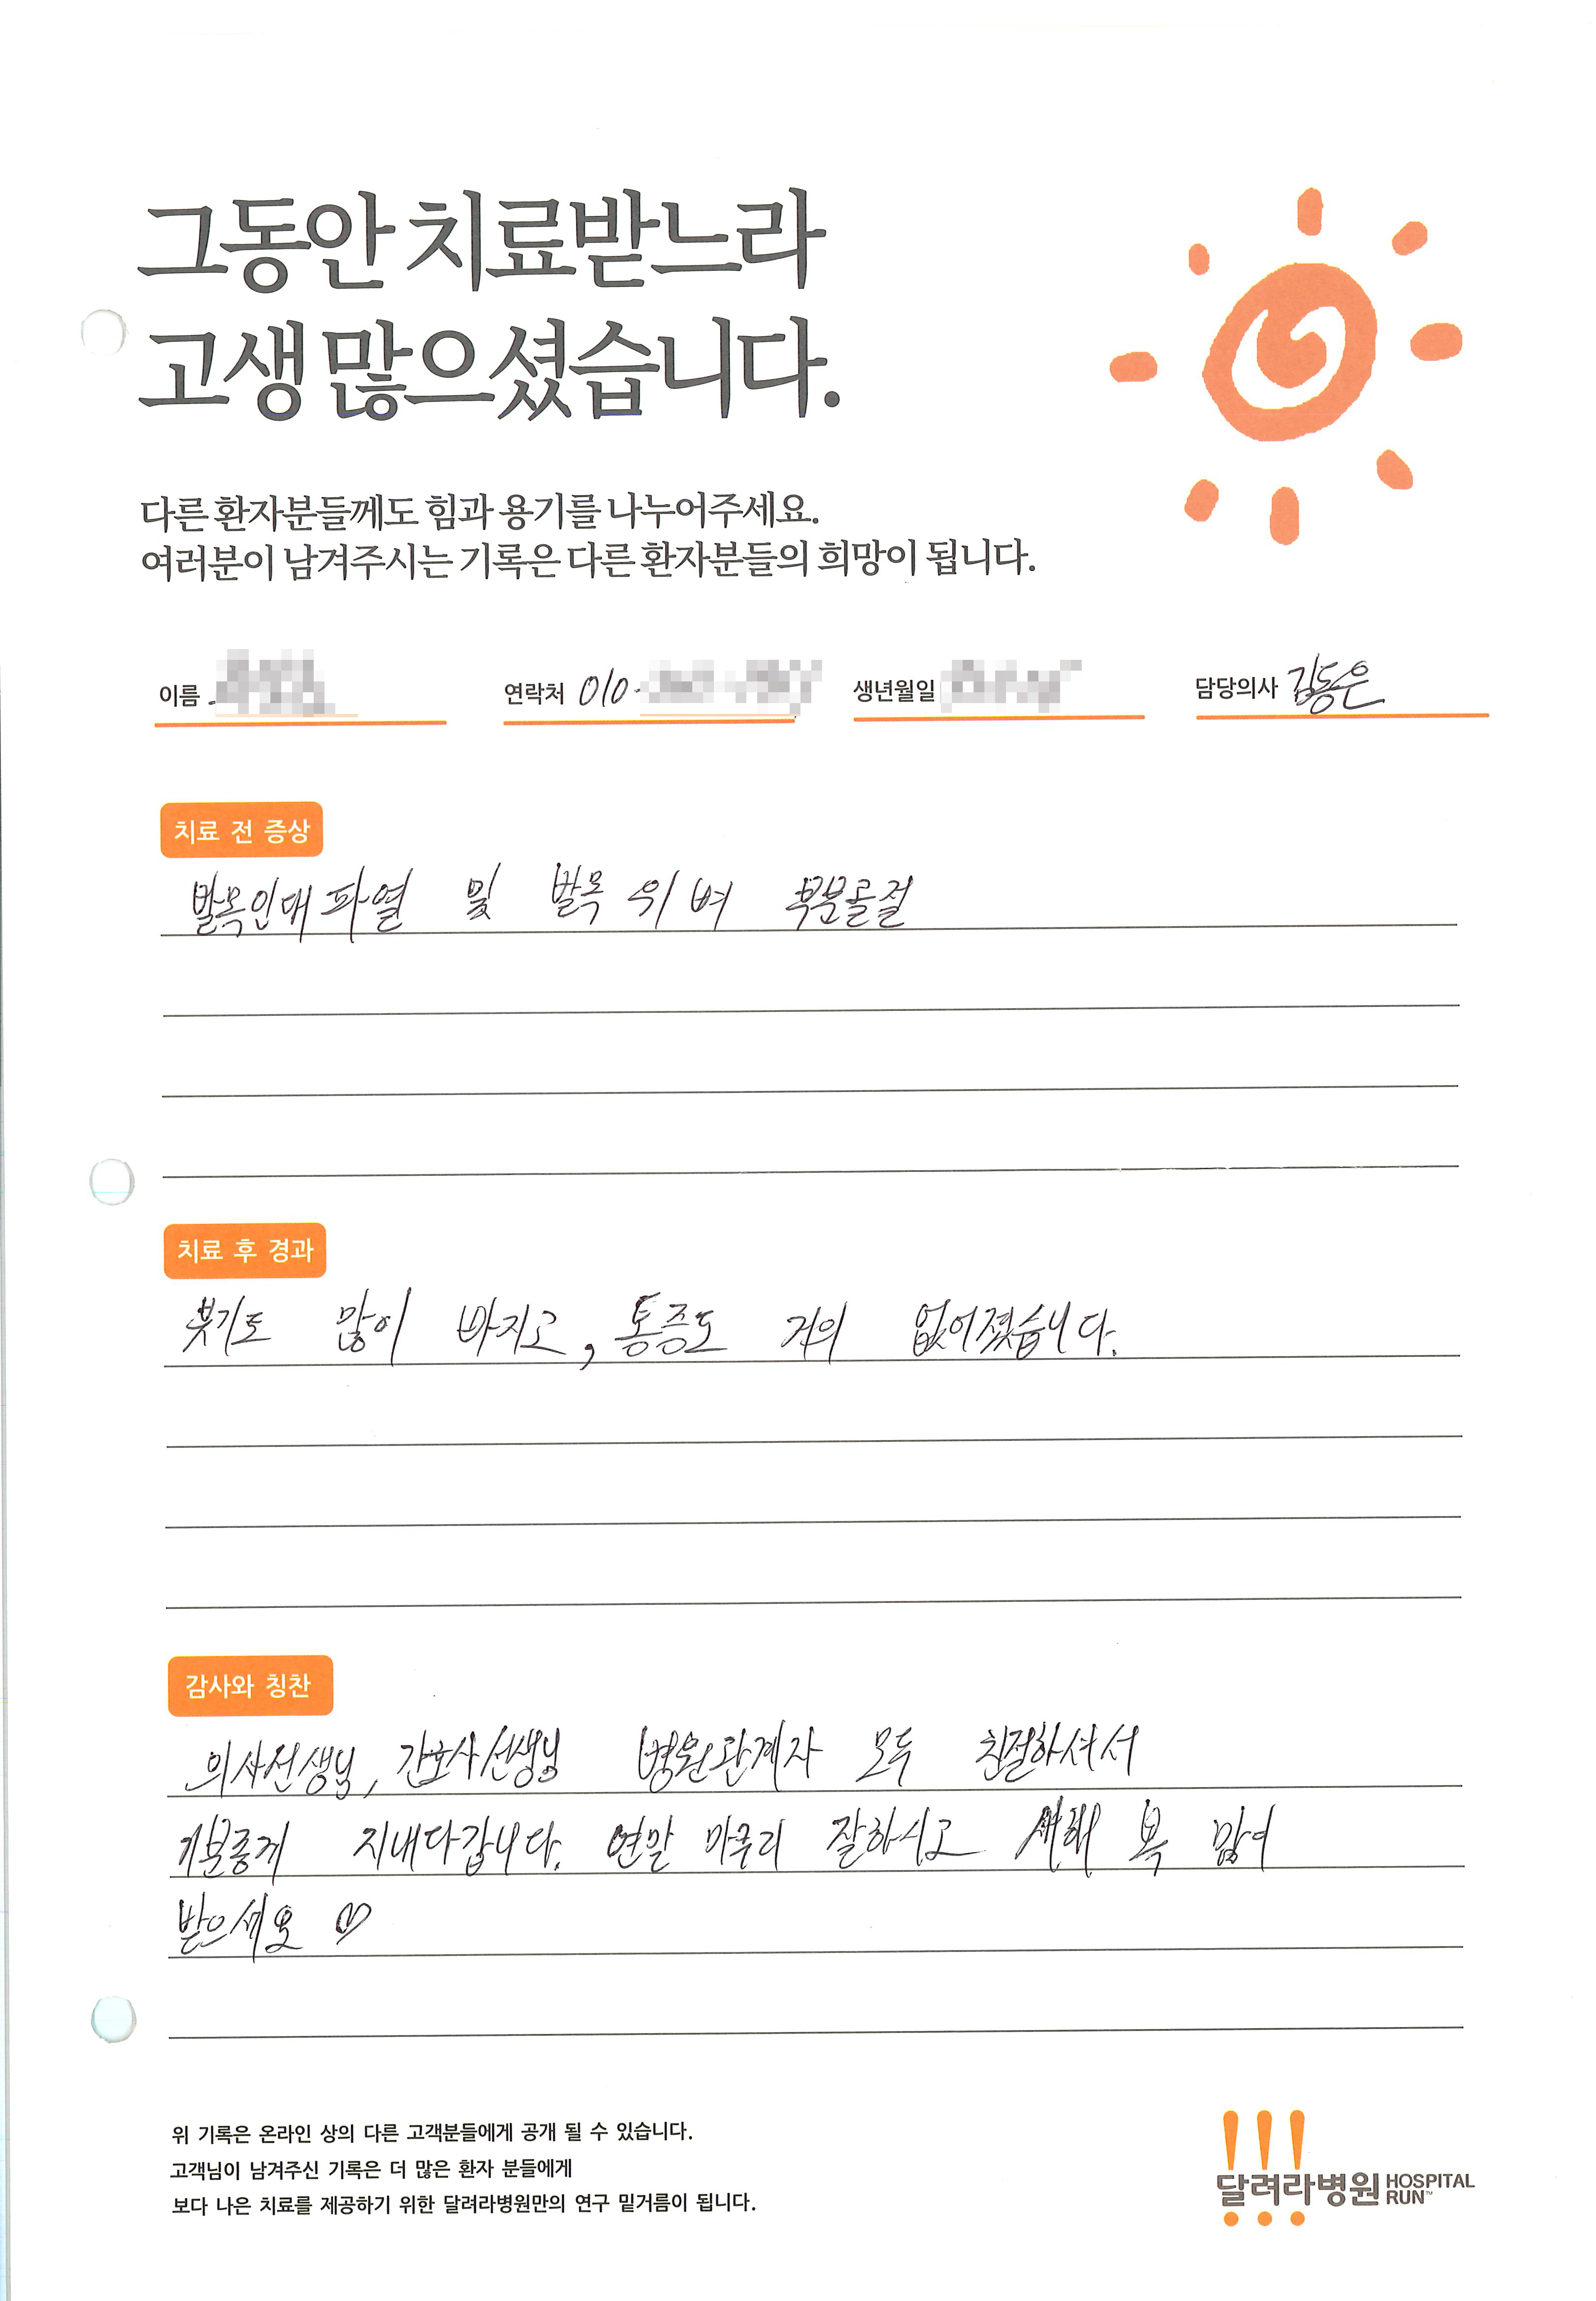 그동안 치료받느라
고생 많으셨습니다.
다른 환자분들께도 힘과 용기를 나누어주세요.
여러분이 남겨주시는 기록은 다른 환자분들의 희망이 됩니다.
이름 연락처 010- 생년월일 담당의사 김동은
치료 전 증상
발목인대파열 및 발목 위 뼈 부분골절
치료 후 경과
붓기도 많이 빠지고, 통증도 거의 없어졌습니다.
감사와 칭찬
의사선생님, 간호사선생님 병원관계자 모두 친절하셔서
기분좋게 지내다갑니다. 연말 마무리 잘하시고 새해 복 많이
받으세요 ♡
위 기록은 온라인 상의 다른 고객분들에게 공개 될 수 있습니다.
고객님이 남겨주신 기록은 더 많은 환자 분들에게
보다 나은 치료를 제공하기 위한 달려라병원만의 연구 밑거름이 됩니다.
달려라병원 HOSPITAL RUN™